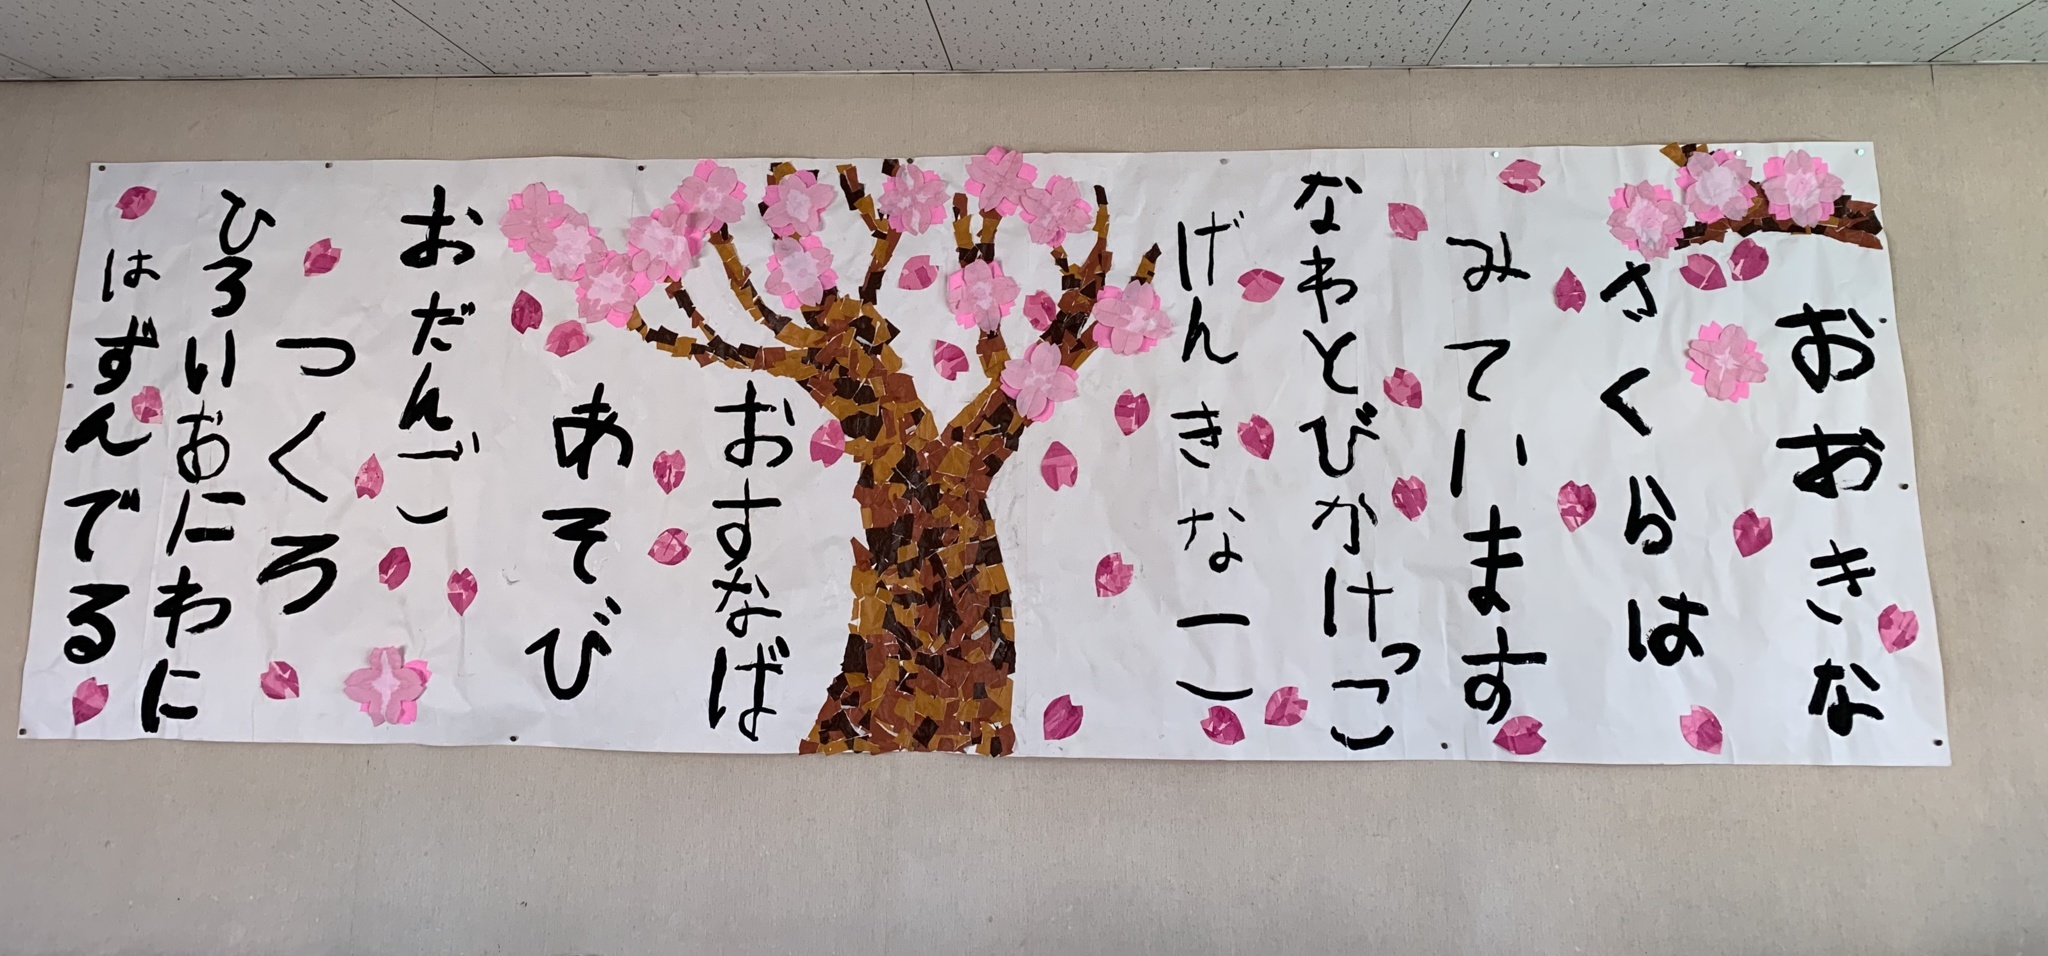 おおきな
さくらは
みています
なわとびかけっこ
げんきなこ
おすなば
あそび
おだんご
つくろ
ひろいおにわに
はずんでる